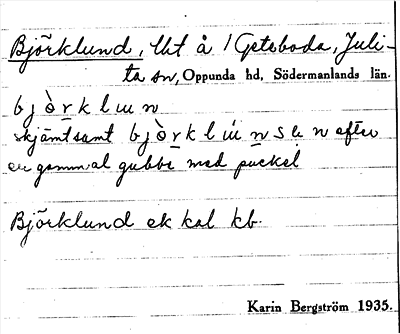 Björklund, lht å 1 Geteboda, Juli-
ta sn, Oppunda hd, Södermanlands län.
b j ò r k l u n
skjämtsamt b j ò r k l ú n s e n efter
en gammal gubbe med puckel
Björklund ek kal kb.
Karin Bergström 1935.